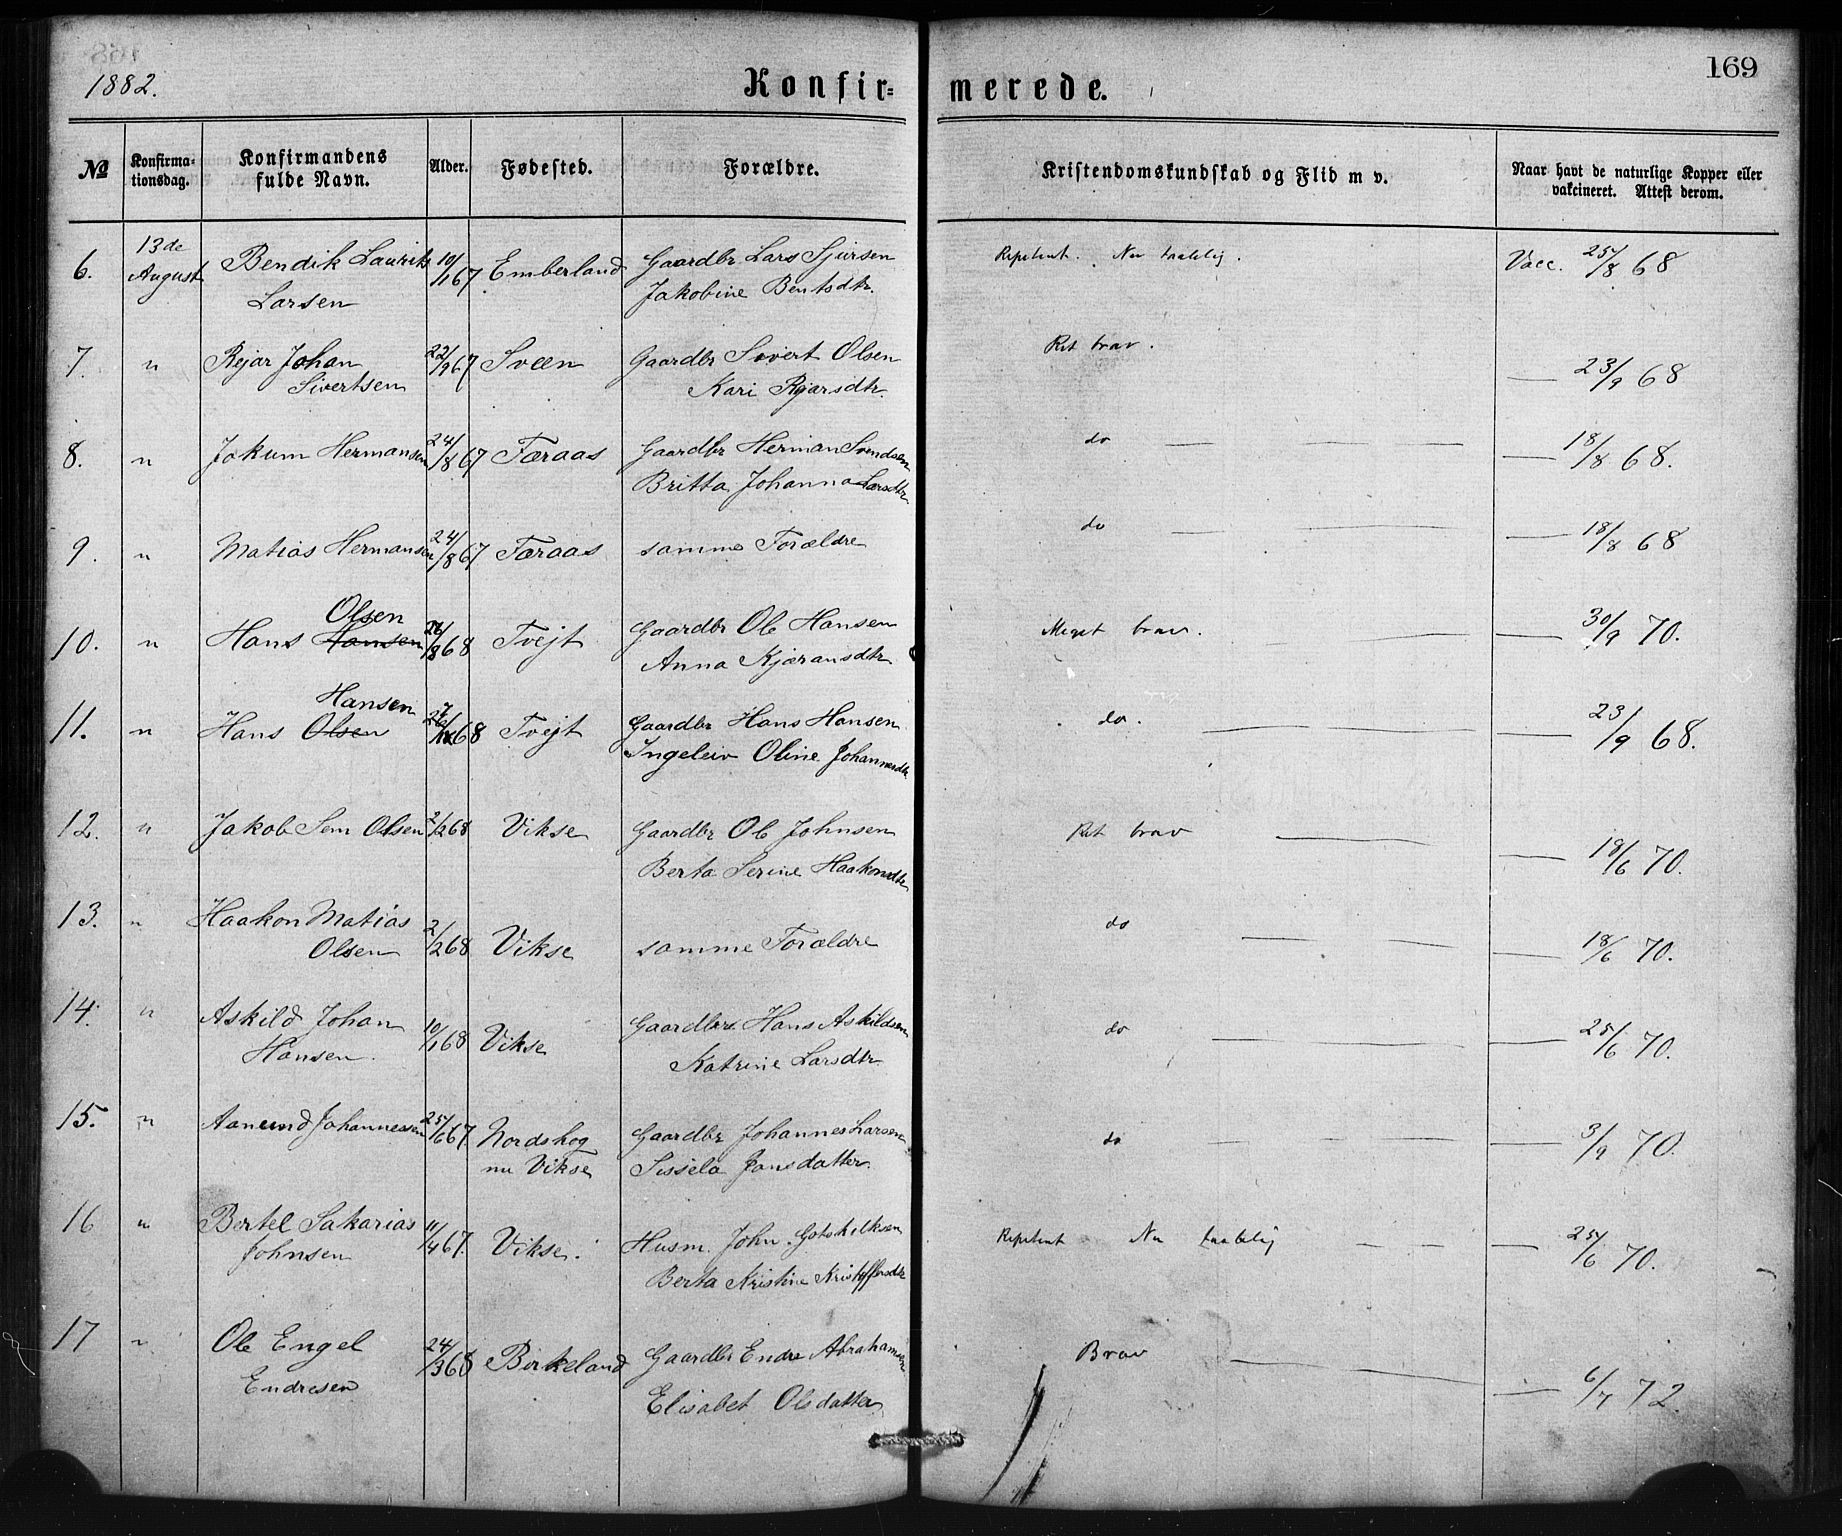 1882.
Konfirmerede.
169
No
Konfirmationsdag.
Konfirmandens fulde Navn.
Alder.
Fødested.
Forældre.
Kristendomskundskab og Flid m v.
Naar havt de naturlige Kopper eller vakcineret. Attest derom.
6. 13de August Bendik Laurits 10/1 67 Emberland Gaardbr Lars Sjursen Repetent. Nu taalelig. Vacc. 25/8 68
Larsen Jakobine Bentsdtr.
7. " Rejar Johan 22/9 67 Sveen Gaardbr Sivert Olsen Ret brav. — 23/9 68
Sivertsen Kari Rejarsdtr.
8. " Jokum Hermansen 24/8 67 Færaas Gaardbr Herman Svendsen do — 18/8 68.
Britta Johanna Larsdtr.
9. " Matias Hermansen 24/8 67 Færaas samme Forældre do — 18/8 68
Olsen
10. " Hans Hansen 68 Tvejt Gaardbr Ole Hansen Meget brav. — 30/9 70.
Anna Kjæransdtr
Hansen
11. " Hans Olsen 68 Tvejt Gaardbr Hans Hansen do. — 23/9 68.
Ingeleiv Oline Johannesdtr
12. " Jakob Sem Olsen 2/2 68 Vikse Gaardbr Ole Johnsen Ret brav — 18/6 70.
Berta Serine Haakonsdtr
13. " Haakon Matias 2/2 68 Vikse samme Forældre do — 18/6 70.
Olsen
14. " Askild Johan 10/1 68 Vikse Gaardbr Hans Askildsen do — 25/6 70.
Hansen. Katrine Larsdtr
15. " Aanund Johannessen 25/6 67 Nordskog Gaardbr Johannes Larsen do — 3/9 70.
nu Vikse Sissela Jansdatter
16 " Bertel Sakarias 11/4 67. Vikse. Husm. John Gotskelksen Repetent Nu taalelig — 25/6 70.
Johnsen Berta Kristine Kristoffersdtr
17 " Ole Engel 24/3 68 Birkeland Gaardbr Endre Abrahamsen Brav — 6/7 72.
Endresen Elisabet Olsdatter